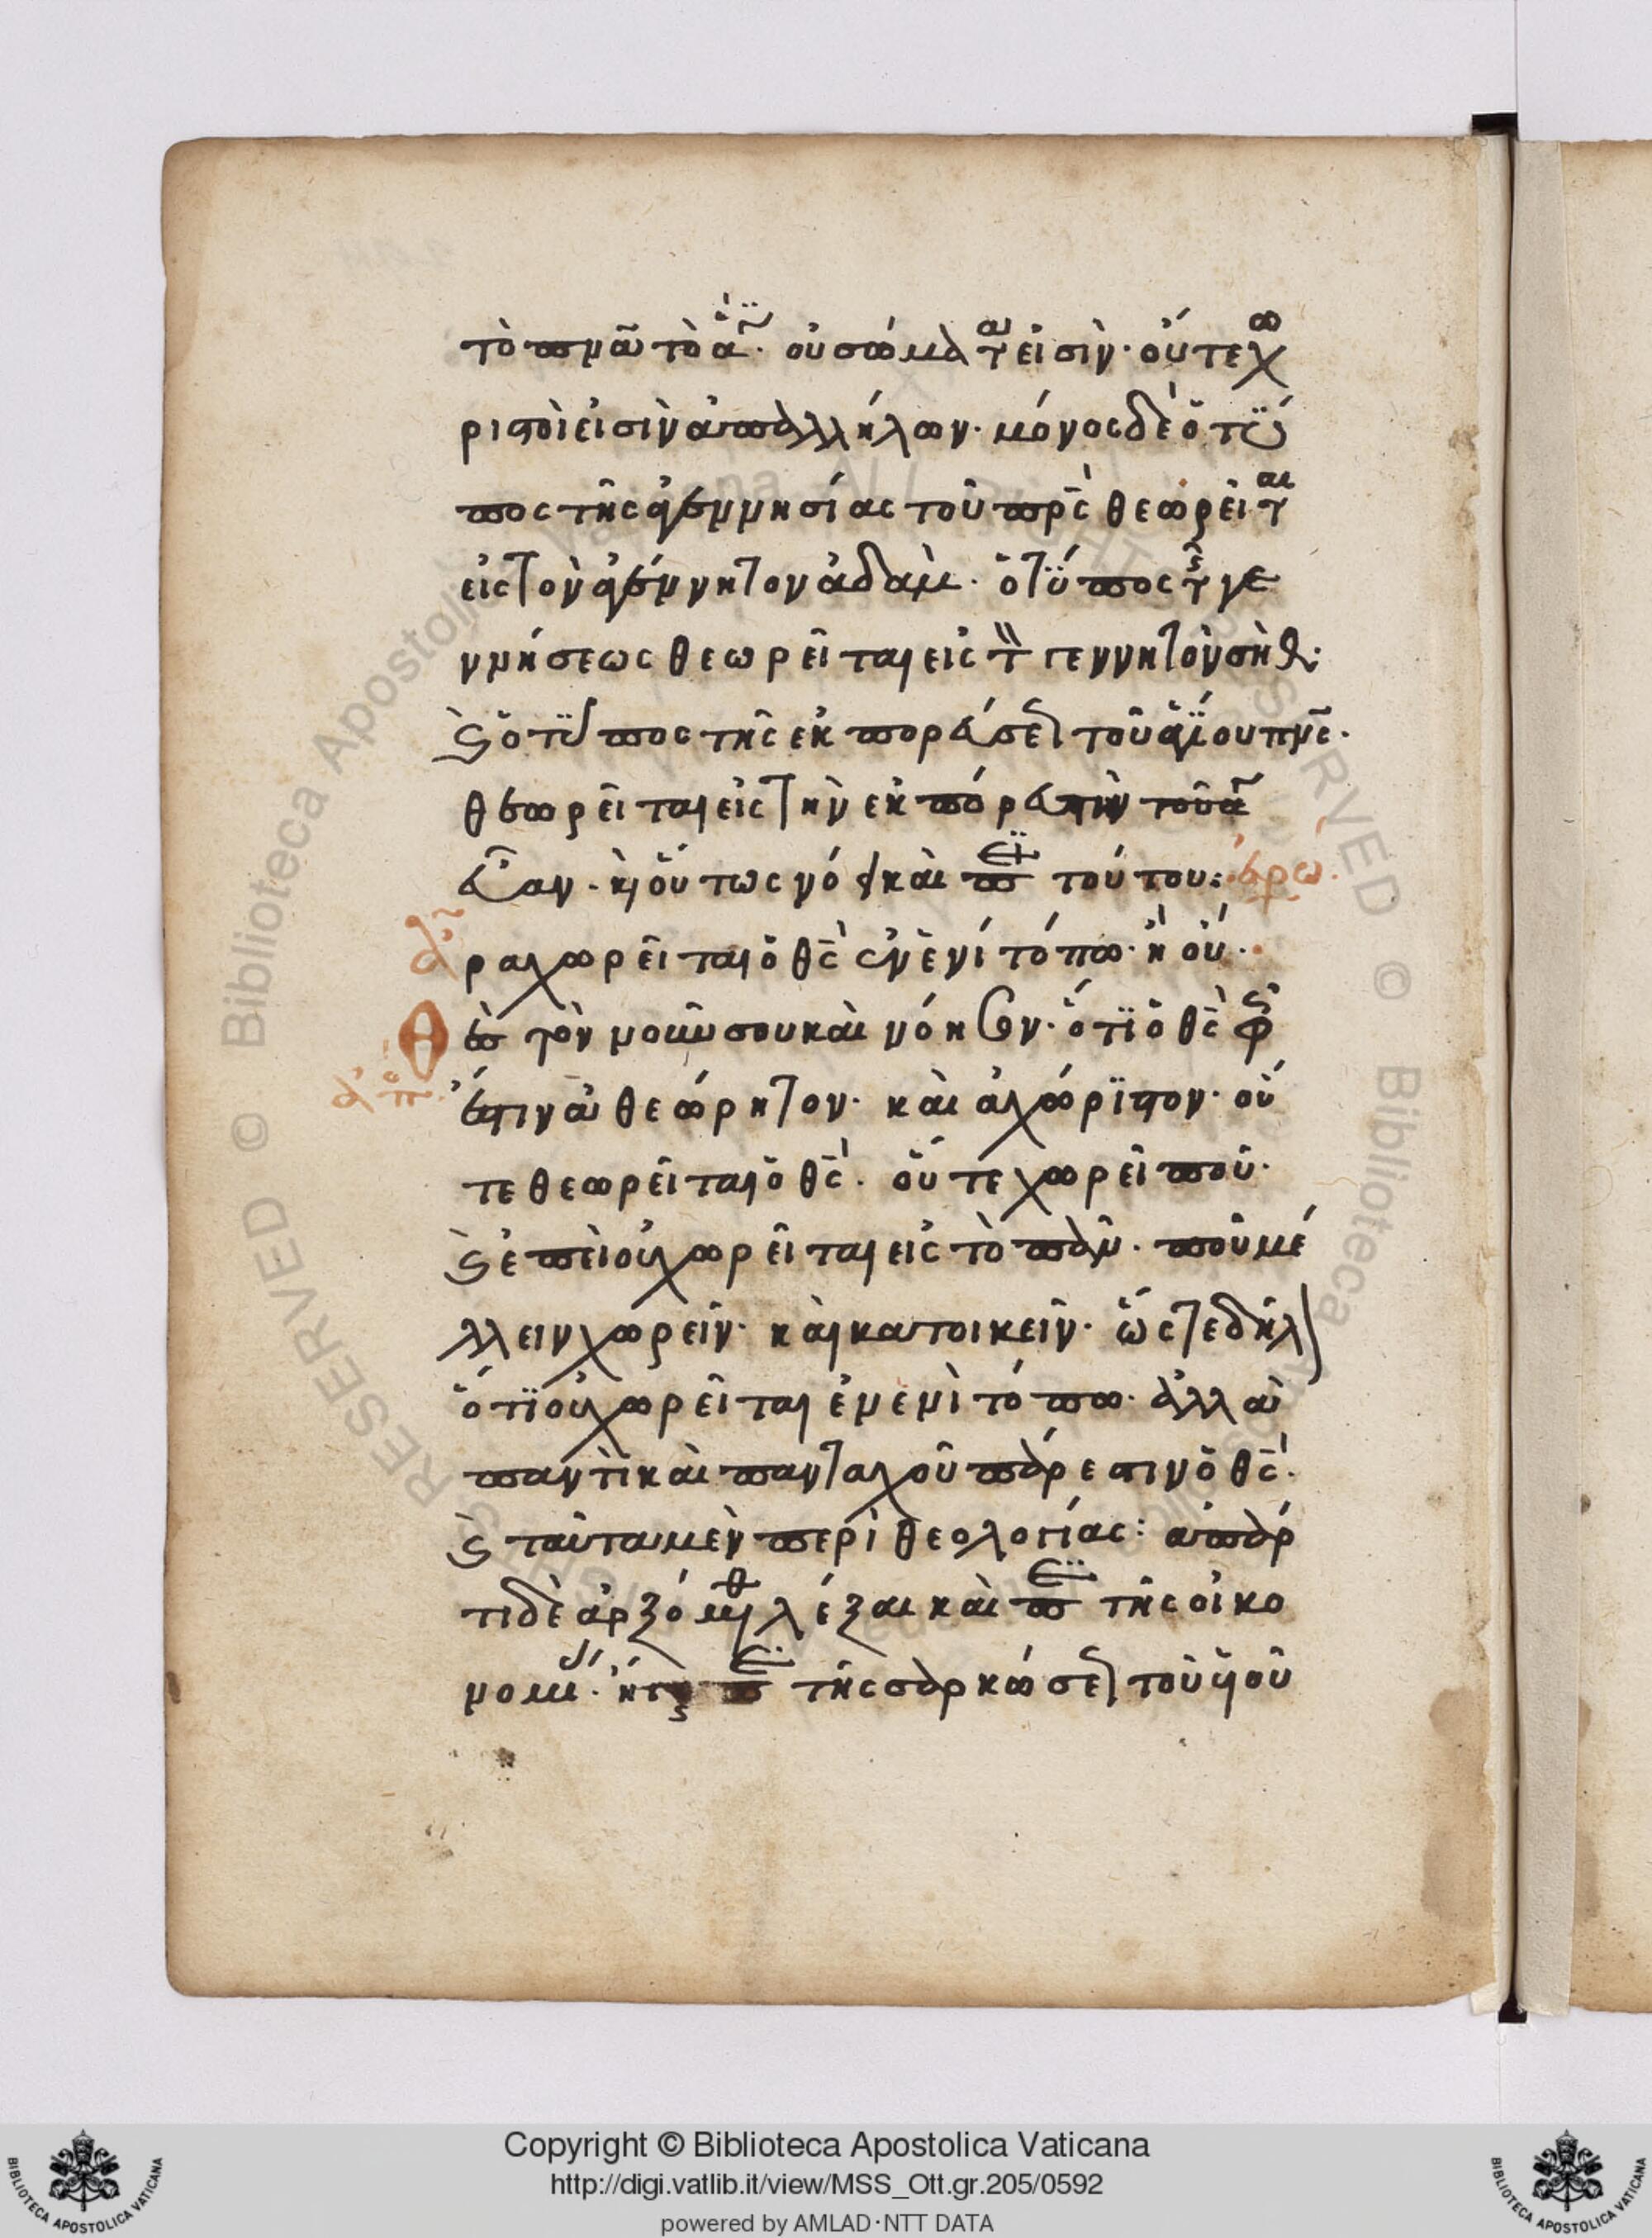 τὸ πνᾶ τὸ ἅγ̃. οὐ σώματα εἰσὶν· οὔτε χω
ριστοὶ εἰσὶν ἀπαλλήλων· μόνος δὲ ὁ τΰ
πος τῆς ἀγεννησίας τοῦ πρ̅ς θεωρεῖται
εἰς τὸν ἀγέννητον ἀδὰμ· ὁ τΰπος τῆς γε
ννήσεως θεωρεῖται εἰς τὸν γεννητὸν σὴθ·
ὁ τΰπος τῆς ἐκπορεύσεως τοῦ ἁγΐου πν̅ς·
θεωρεῖται εἰς τὴν ἐκπόρευσιν τοῦ ἀ
εὔαν· καὶ οὕτως νόει καὶ περὶ τούτου: ἐρω
ρα χωρεῖται ὁ θς̅ ἐν ἑνί τόπω· ἢ οὔ·
Θ
ἀπ̅
ἐστιν ἀθεώρητον· καὶ ἀχώρϊστον· οὔ
τε θεωρεῖται ὁ θς̅· οὔτε χωρεῖ ποῦ·
ἐπεὶ οὐ χωρεῖται εἰς τὸ πᾶν· ποῦ μέ
λλειν χωρεῖν· καὶ κατοικεῖν· ὥστε δῆλ
ὅτϊ οὐ χωρεῖται ἐν ἑνὶ τόπω· ἀλλὰ
παντὶ καὶ πανταχοῦ πάρεστιν ὁ θς̅·
ταῦτα μὲν περὶ θεολογίας: ἀπάρ
τι δὲ ἀρξόμεθα λέξαι καὶ περὶ τῆς οἰκο
νομίας· ἤτοι περὶ τῆς σαρκώσεως τοῦ υἱοῦ
Copyright © Biblioteca Apostolica Vaticana
http://digi.vatlib.it/view/MSS_Ott.gr.205/0592
powered by AMLAD·NTT DATA